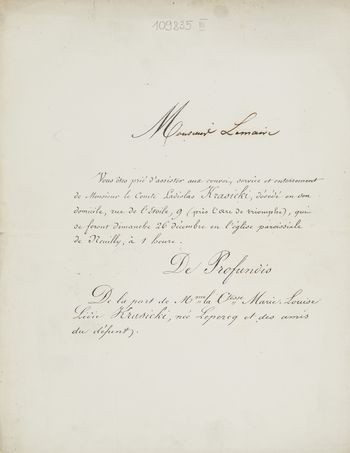 109835 III
Monsieur Lemaire
Vous êtes prié d'assister aux convoi, service et enterrement
de Monsieur le Comte Ladislas Krasicki, décédé en son
domicile, rue de l'Etoile, 9 (près l'arc de triomphe), qui
se feront dimanche 26 décembre en l'église paroissiale
de Neuilly, à 1 heure.
De Profundis
De la part de Mme la Ctesse Marie-Louise
Lidie Krasicki, née Leporcq et des amis
du défunt).